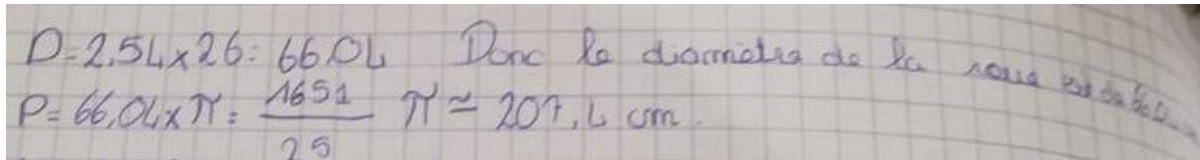 D=2.54x26= 66.04 Donc le diamètre de la roue est de 66.04
P= 66,04xπ= 1651/25 π ≃ 207,4 cm.